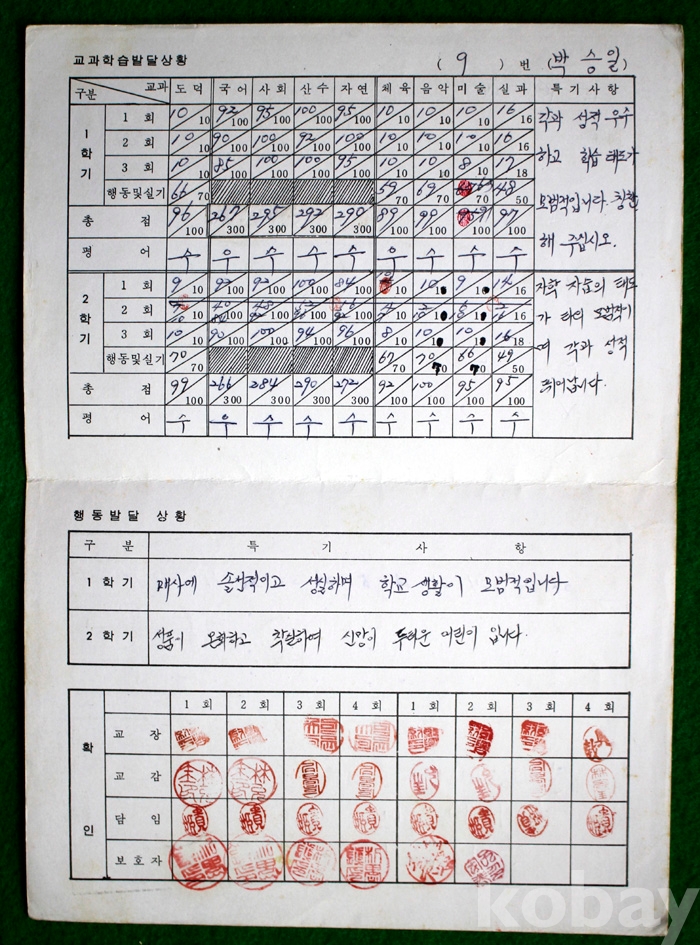 교과학습발달상황 ( 9 ) 번 (박승일)
구분 교과 도덕 국어 사회 산수 자연 체육 음악 미술 실과 특기사항
1학기
1 회 10/10 92/100 95/100 100/100 95/100 10/10 10/10 10/10 16/16
2 회 10/10 90/100 100/100 92/100 100/100 10/10 10/10 10/10 16/16
3 회 10/10 85/100 100/100 100/100 95/100 10/10 10/10 8/10 17/18
행동및실기 66/70 59/70 69/70 /70 48/50
총 점 96/100 267/300 295/300 292/300 290/300 89/100 99/100 /100 97/100
평 어 수 우 수 수 수 우 수 수 수
각과 성적 우수
하고 학습 태도가
모범적입니다. 칭찬
해 주십시오.
2학기
1 회 9/10 92/100 92/100 100/100 84/100 /10 10/10 9/10 14/16
2 회
3 회 10/10 90/100 100/100 94/100 96/100 8/10 10/10 10/10 16/18
행동및실기 70/70 67/70 70/70 66/70 49/50
총 점 99/100 266/300 284/300 290/300 272/300 92/100 100/100 95/100 95/100
평 어 수 우 수 수 수 수 수 수 수
자학 자습의 태도
가 타의 모범적이
며 각과 성적
뛰어납니다.
행동발달 상황
구 분 특 기 사 항
1 학 기 매사에 솔선적이고 성실하며 학교생활이 모범적입니다
2 학 기 성품이 온화하고 착실하여 신망이 두터운 어린이 입니다.
확인
1 회 2 회 3 회 4 회 1 회 2 회 3 회 4 회
교 장
교 감
담 임
보 호 자
kobay